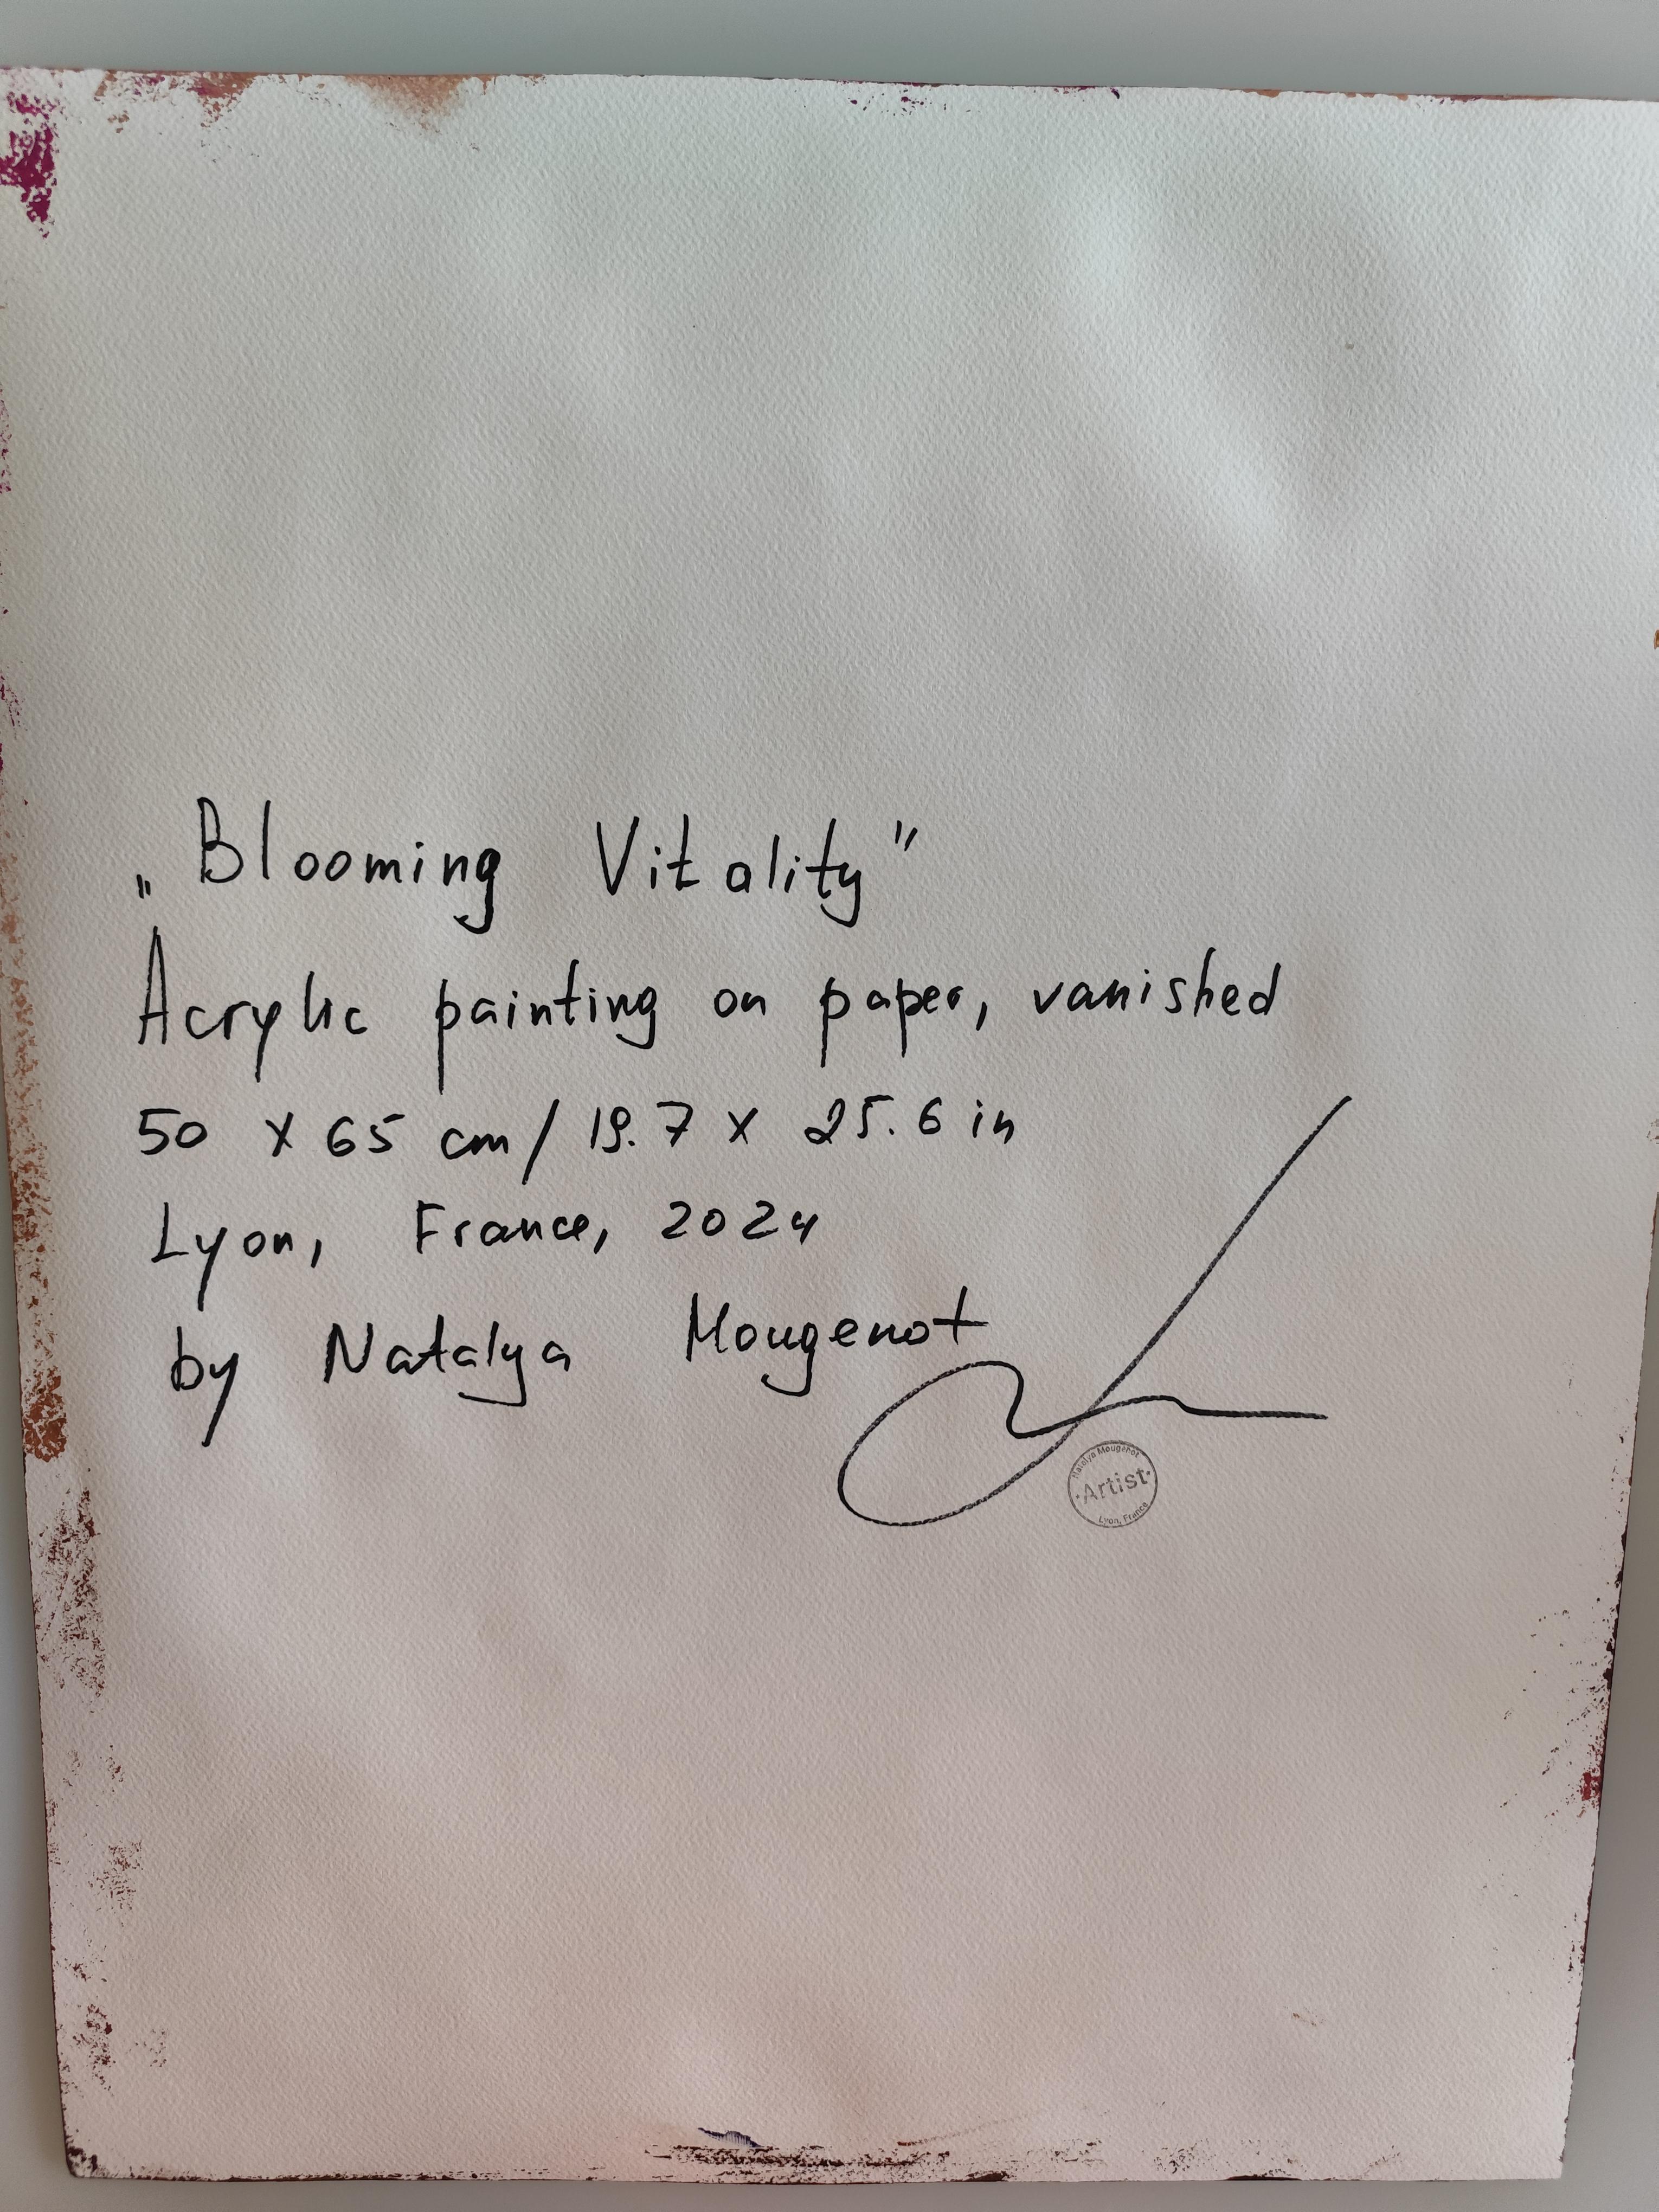 „Blooming Vitality”
Acrylic painting on paper, vanished
50 x 65 cm / 19.7 x 25.6 in
Lyon, France, 2024
by Natalya Mougenot
Natalya Mougenot
·Artist·
Lyon, France